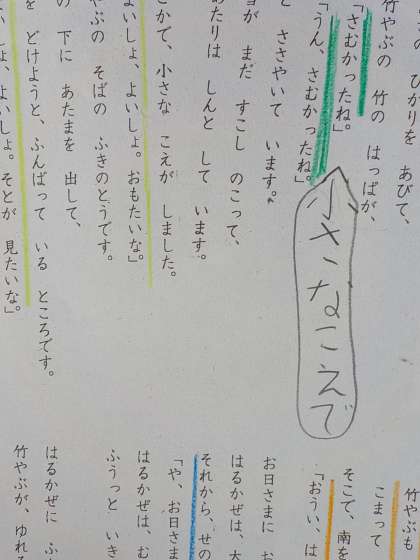 の ひかりを あびて、
竹やぶの 竹の はっぱが、
「さむかったね。」
「うん、さむかったね。」
小さなこえで
と ささやいて います。
が まだ すこし のこって、
あたりは しんと して います。
こかで、小さな こえが しました。
よいしょ、よいしょ。おもたいな。」
やぶの そばの ふきのとうです。
の 下に あたまを 出して、
を どけようと、ふんばって いる ところです。
いしょ、よいしょ。そとが 見たいな。」
竹やぶも
こまって
そこで、南を
「おうい、は
お日さまに お
はるかぜは、大
それから、せの
「や、お日さま
はるかぜは、む
ふうっと いき
はるかぜに ふ
竹やぶが、ゆれ